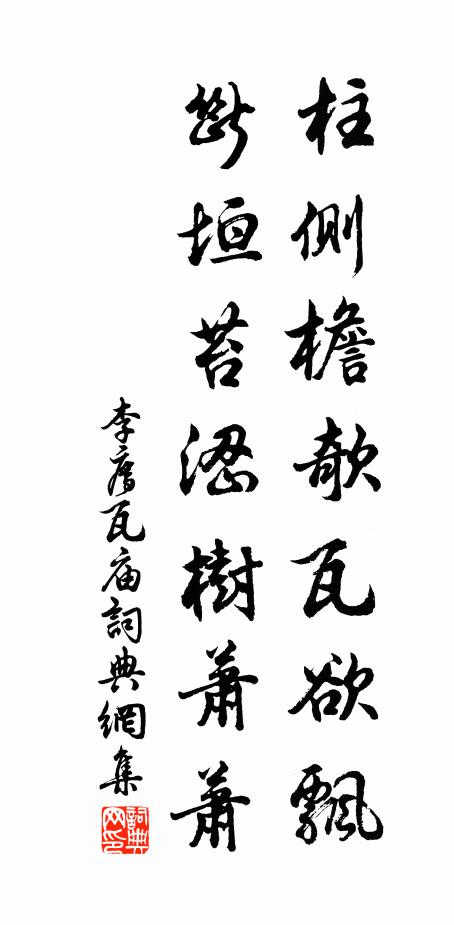 柱側檐欹瓦欲飄
斷垣苔澀樹蕭蕭
李廌瓦庙詞典網集
詞典网印